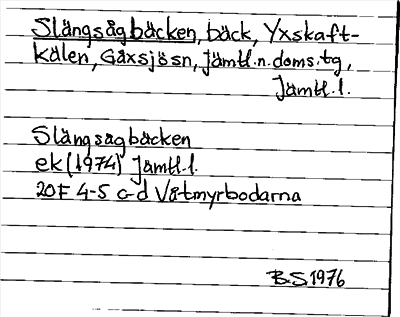 Slängsågbäcken, bäck, Yxskaft-
kälen, Gåxsjösn, Jämtl.n.doms.tg,
Jämtl.l.
Slängsagbäcken
ek (1974) Jämtl.l.
20F 4-5 c-d Våtmyrbodarna
BS 1976